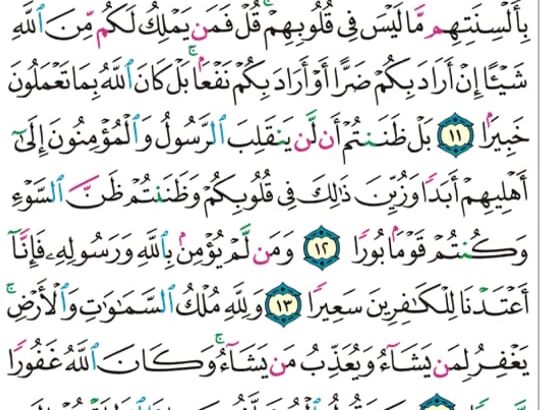 بِأَلْسِنَتِهِم مَّا لَيْسَ فِى قُلُوبِهِمْ ۚ قُلْ فَمَن يَمْلِكُ لَكُم مِّنَ ٱللَّهِ
شَيْـًٔا إِنْ أَرَادَ بِكُمْ ضَرًّا أَوْ أَرَادَ بِكُمْ نَفْعًۢا ۚ بَلْ كَانَ ٱللَّهُ بِمَا تَعْمَلُونَ
خَبِيرًۢا ١١ بَلْ ظَنَنتُمْ أَن لَّن يَنقَلِبَ ٱلرَّسُولُ وَٱلْمُؤْمِنُونَ إِلَىٰٓ
أَهْلِيهِمْ أَبَدًا وَزُيِّنَ ذَٰلِكَ فِى قُلُوبِكُمْ وَظَنَنتُمْ ظَنَّ ٱلسَّوْءِ
وَكُنتُمْ قَوْمًۢا بُورًا ١٢ وَمَن لَّمْ يُؤْمِنۢ بِٱللَّهِ وَرَسُولِهِۦ فَإِنَّآ
أَعْتَدْنَا لِلْكَـٰفِرِينَ سَعِيرًا ١٣ وَلِلَّهِ مُلْكُ ٱلسَّمَـٰوَٰتِ وَٱلْأَرْضِ ۚ
يَغْفِرُ لِمَن يَشَآءُ وَيُعَذِّبُ مَن يَشَآءُ ۚ وَكَانَ ٱللَّهُ غَفُورًا